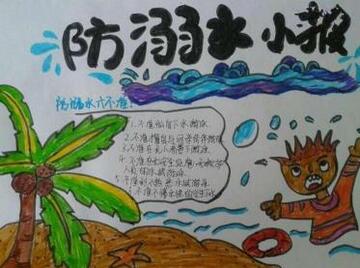 防溺水小报
防溺水六不准:
1.不准私自下水游泳
2.不准擅自与同学结伴游泳
3.不准在无
4.不准在无安全设施、无救护
人员的水域游泳
5.不准到不熟悉水域游泳